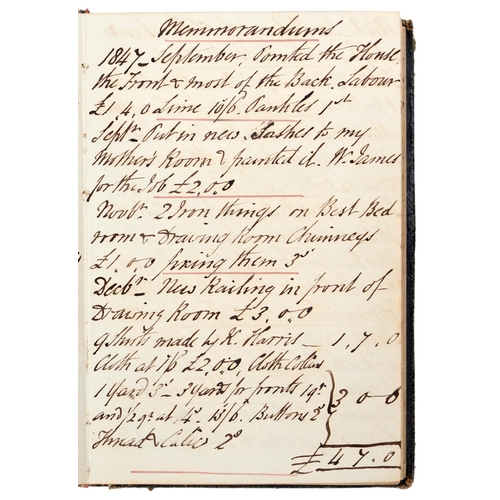 Memmorandums
1847 - September. Pointed the House,
the Front & most of the Back. Labour
£1,4,0 Lime 10/6. Pantiles 1st
Septbr. Put in new Sashes to my
Mothers Room & painted it. W. James
for the Job £2,0,0
Novbr. 2 Iron things on Best Bed
room & Drawing Room Chimneys
£1,0,0 fixing them 3s
Decbr. New Railing in front of
Drawing Room £3,0,0
9 Shirts made by K. Harris - 1,7,0
Cloth at 1/6 £2,0,0, Cloth Collars
1 Yard 3s - 3 Yards for fronts
and at 4s. 13/6. Buttons 2s
Thread & Calico 2s
3 0 0
£ 4 7. 0